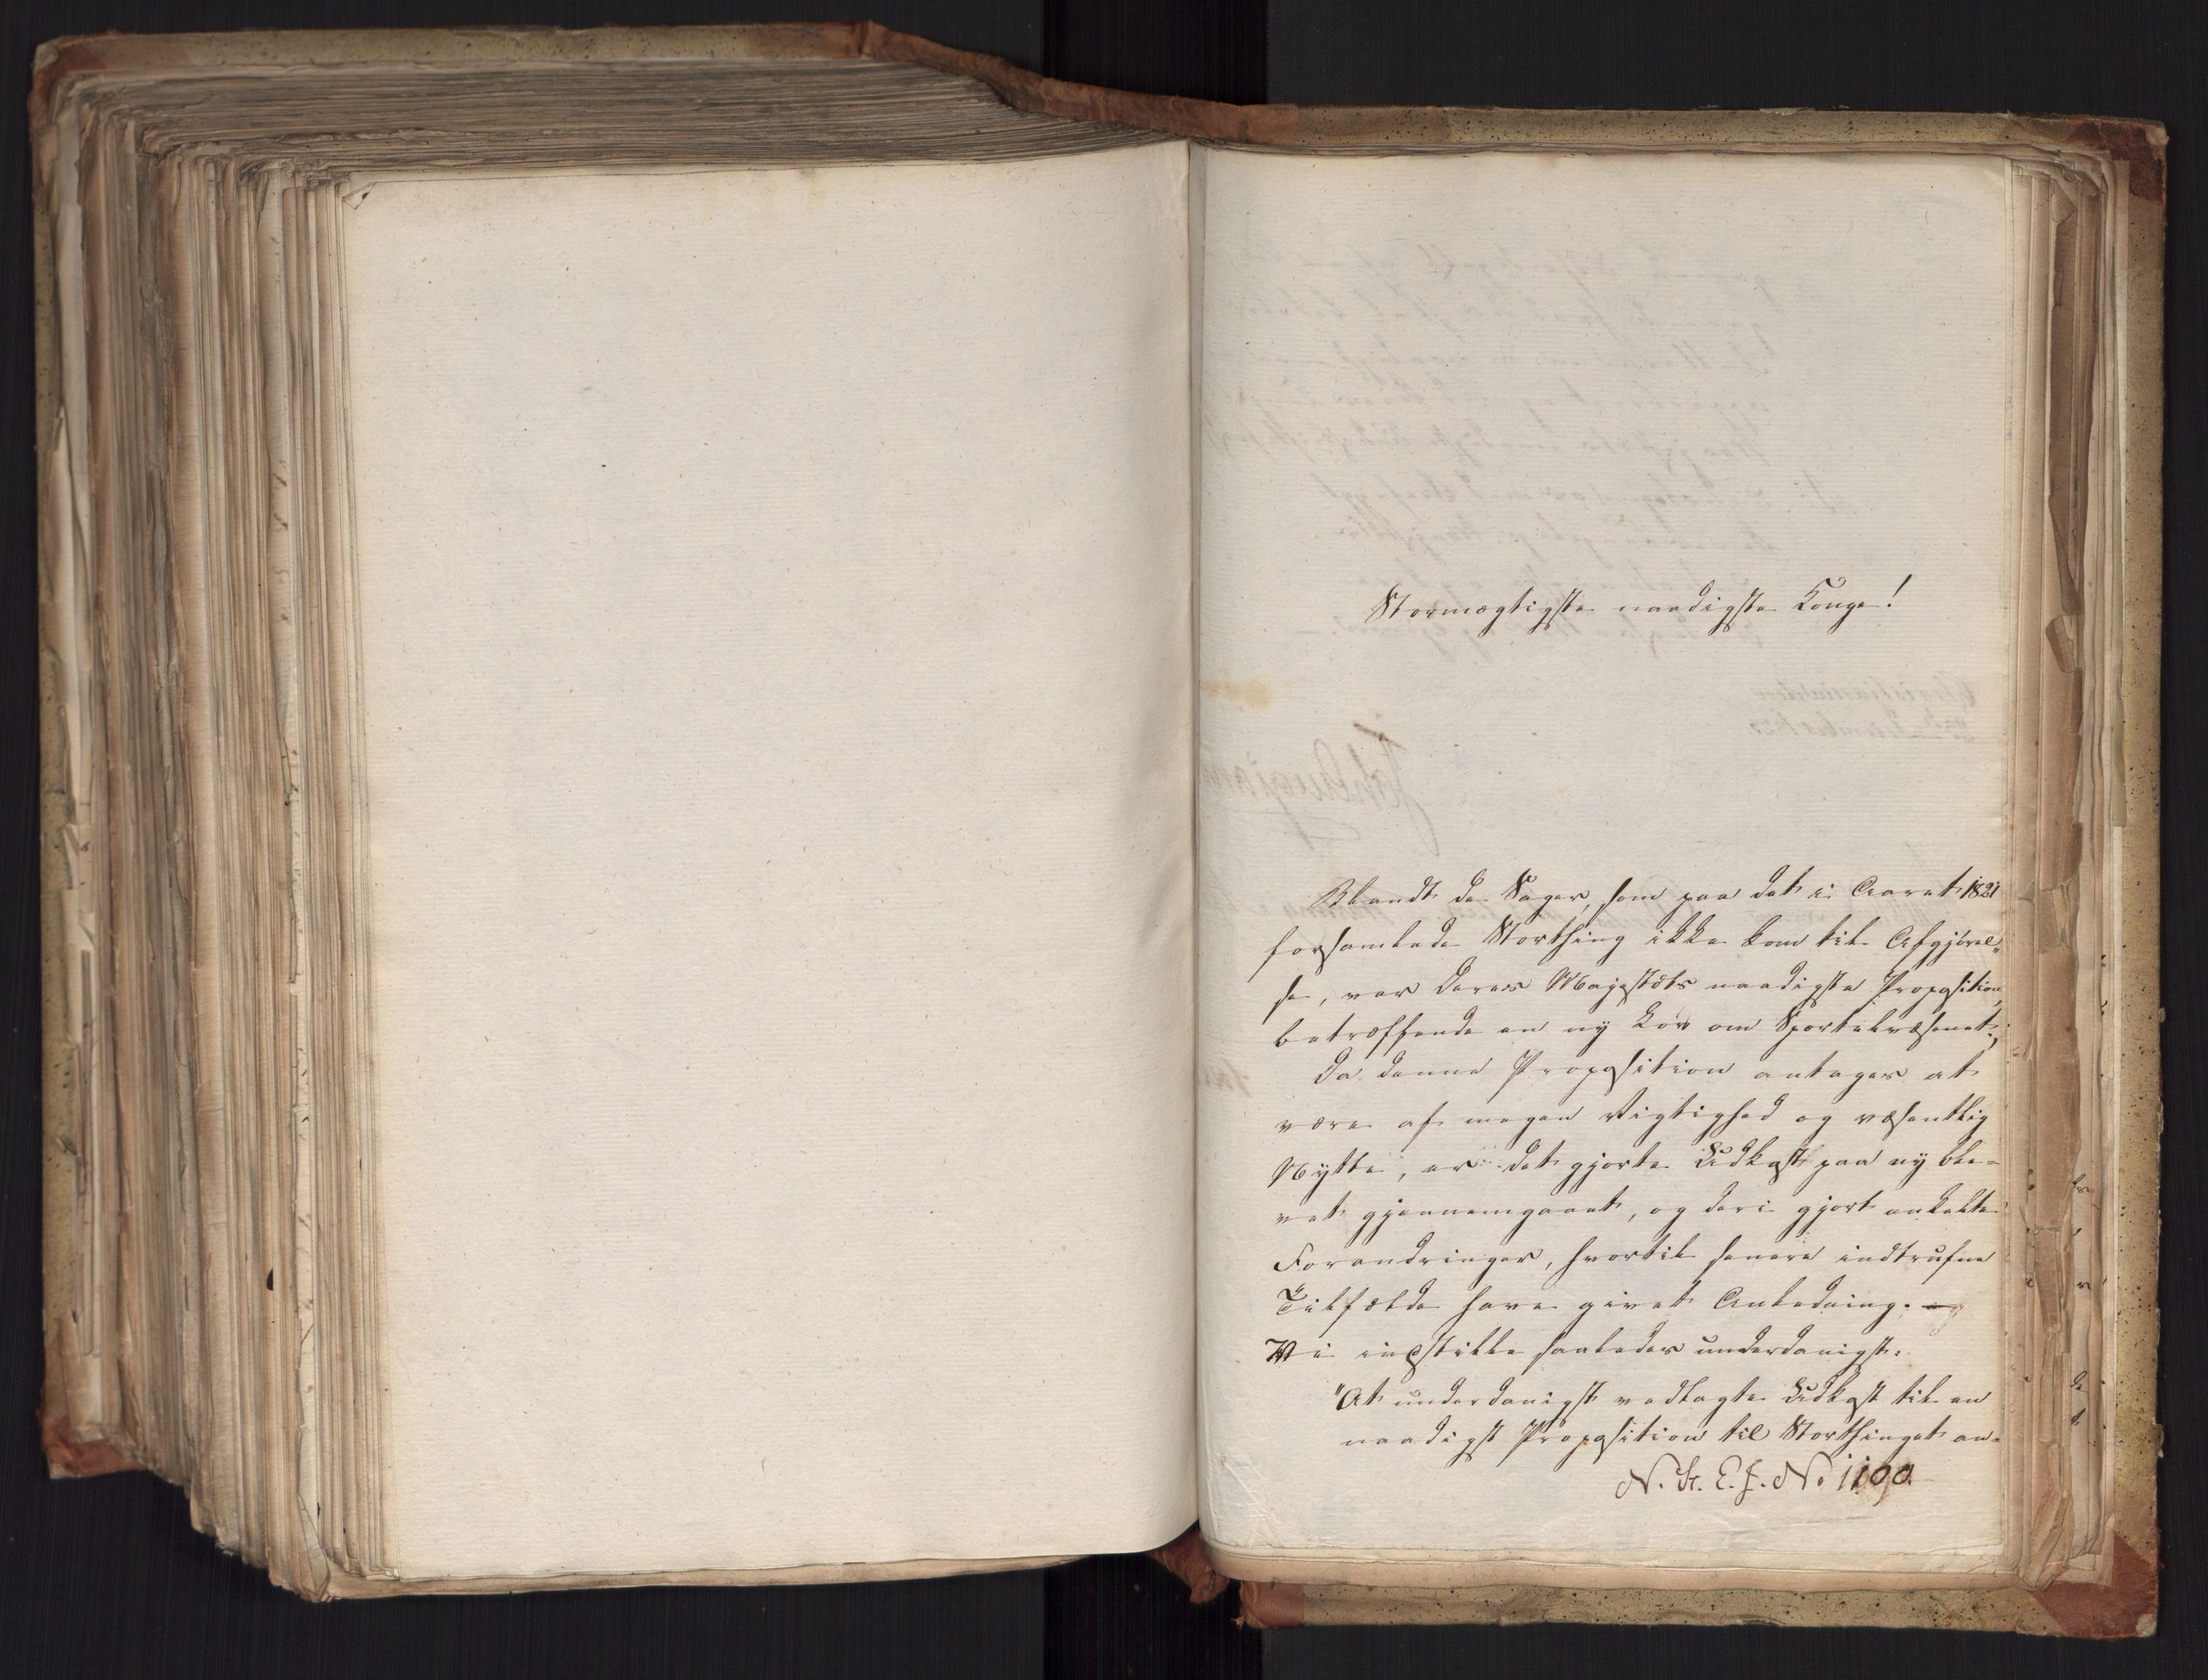 Stormægtigste naadigste Konge!
Blandt de Sager, som paa det i Aaret 1821
forsamlede Storthing ikke kom til Afgjørel-
se, var Deres Majestæts naadigste Proposition,
betræffende en ny Lov om Sportelvæsenet;
Da denne Proposition antages at
være af megen Vigtighed og væsentlig
Nytte, er det gjorte Udkast paa ny ble-
vet gjennemgaaet, og deri gjort enkelte
Forandringer, hvortil senere indtrufne
Tilfælde have givet Anledning. —
Vi indstille saaledes underdanigst:
"At underdanigst vedlagte Udkast til en
naadigst Proposition til Storthinget an-
N. St. E. J. No 1190.